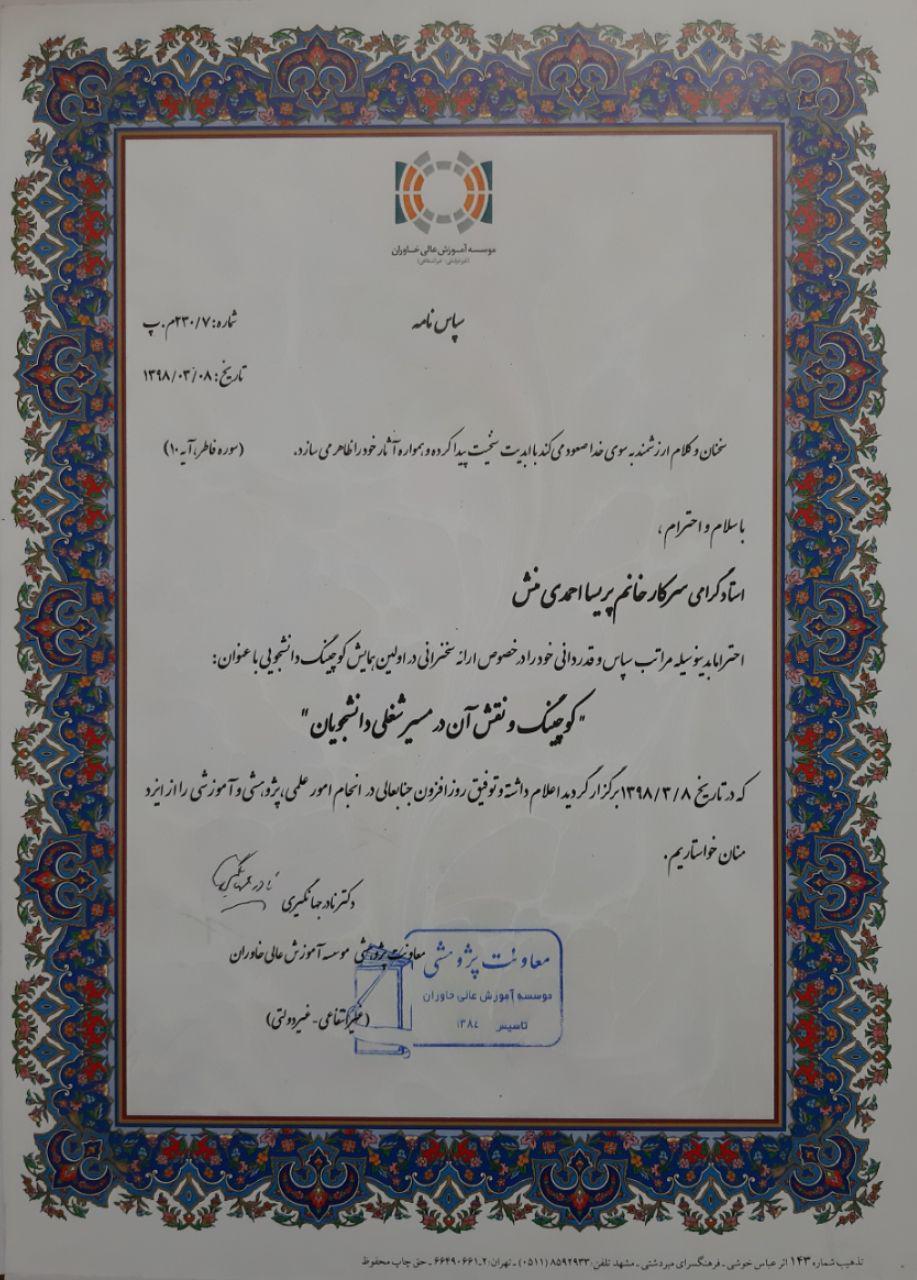 موسسه آموزش عالی خاوران
(غیردولتی - غیرانتفاعی)
سپاس نامه
شماره: ۲۳۰/۷م.پ
تاریخ: ۱۳۹۸/۰۳/۰۸
سخنان و کلام ارزشمند به سوی خدا صعود می کند با ابدیت سنخیت پیدا کرده و همواره آثار خود را ظاهر می سازد. (سوره فاطر، آیه ۱۰)
با سلام و احترام ،
استاد گرامی سرکار خانم پریسا احمدی منش
احتراما بدینوسیله مراتب سپاس و قدردانی خود را در خصوص ارائه سخنرانی در اولین همایش کوچینگ دانشجویی با عنوان:
"کوچینگ و نقش آن در مسیر شغلی دانشجویان"
که در تاریخ ۱۳۹۸/۳/۸ برگزار گردید اعلام داشته و توفیق روز افزون جنابعالی در انجام امور علمی، پژوهشی و آموزشی را از ایزد
منان خواستاریم.
دکتر نادر جهانگیری
معاونت پژوهشی موسسه آموزش عالی خاوران
(غیرانتفاعی - غیردولتی)
معاونت پژوهشی
موسسه آموزش عالی خاوران
تاسیس ۱۳۸۷
تذهیب شماره ۱۴۳ اثر عباس خوشی - فرهنگسرای میردشتی - مشهد تلفن: ۸۵۹۲۹۳۳ (۰۵۱۱) - تهران: ۲-۶۶۴۹۰۶۶۱ - حق چاپ محفوظ